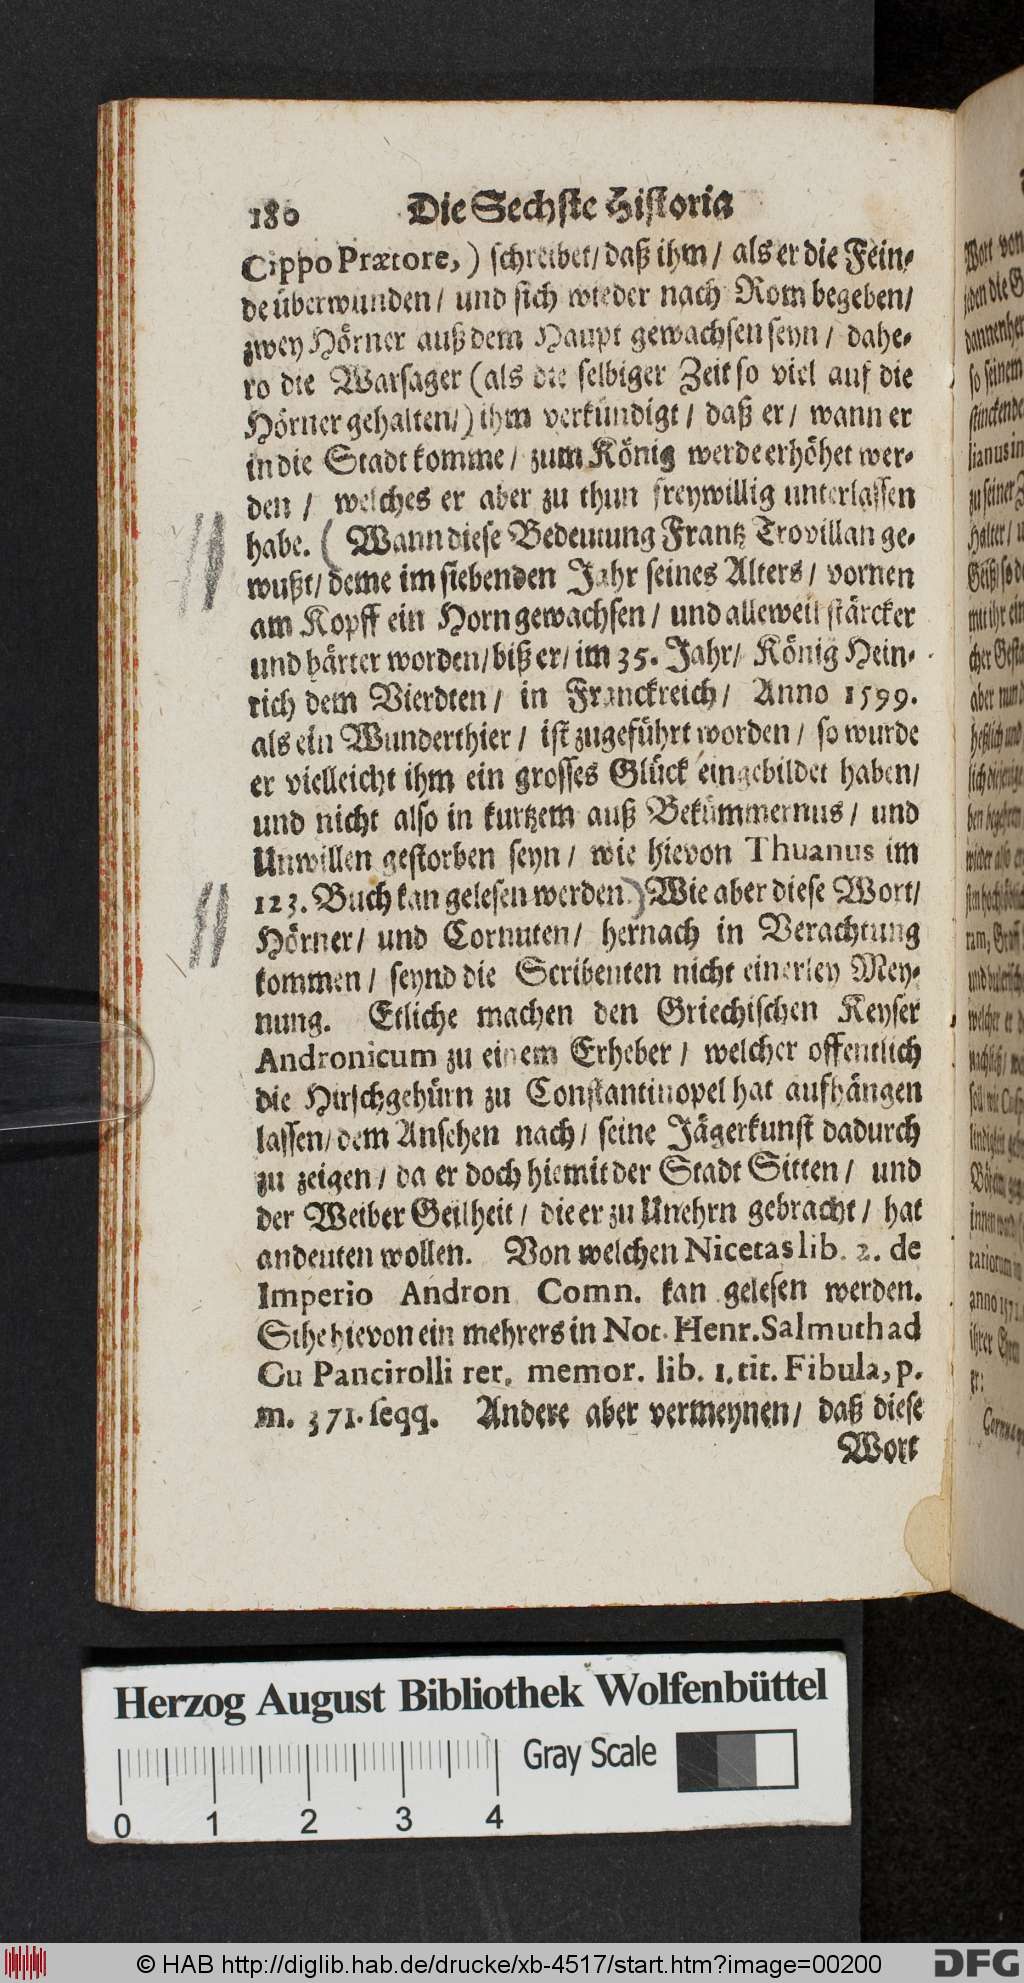 180 Die Sechste Historia
Cippo Prætore,) schreibet/ daß ihm/ als er die Fein-
de überwunden/ und sich wieder nach Rom begeben/
zwey Hörner auß dem Haupt gewachsen seyn/ dahe-
ro die Warsager (als die selbiger Zeit so viel auf die
Hörner gehalten/) ihm verkündigt/ daß er/ wann er
in die Stadt komme/ zum König werde erhöhet wer-
den/ welches er aber zu thun freywillig unterlassen
habe. (Wann diese Bedeutung Frantz Trovillan ge-
wußt/ deme im siebenden Jahr seines Alters/ vornen
am Kopff ein Horn gewachsen/ und alleweil stärcker
und härter worden/ biß er/ im 35. Jahr/ König Hein-
rich dem Vierdten/ in Franckreich/ Anno 1599.
als ein Wunderthier/ ist zugeführt worden/ so wurde
er vielleicht ihm ein grosses Glück eingebildet haben/
und nicht also in kurtzem auß Bekümmernus/ und
Unwillen gestorben seyn/ wie hievon Thuanus im
123. Buch kan gelesen werden.) Wie aber diese Wort/
Hörner/ und Cornuten/ hernach in Verachtung
kommen/ seynd die Scribenten nicht einerley Mey-
nung. Etliche machen den Griechischen Keyser
Andronicum zu einem Erheber/ welcher offentlich
die Hirschgehürn zu Constantinopel hat aufhängen
lassen/ dem Ansehen nach/ seine Jägerkunst dadurch
zu zeigen/ da er doch hiemit der Stadt Sitten/ und
der Weiber Geilheit/ die er zu Unehrn gebracht/ hat
andeuten wollen. Von welchen Nicetas lib. 2. de
Imperio Andron Comn. kan gelesen werden.
Sihe hievon ein mehrers in Not. Henr. Salmuth ad
Gu Pancirolli rer. memor. lib. 1. tit. Fibula, p.
m. 371. seqq. Andere aber vermeynen/ daß diese
Wort
Herzog August Bibliothek Wolfenbüttel
Gray Scale
0 1 2 3 4
© HAB http://diglib.hab.de/drucke/xb-4517/start.htm?image=00200
DFG